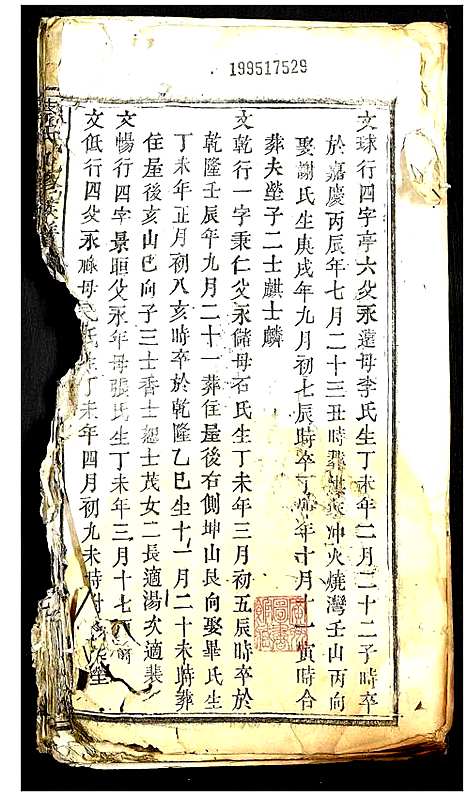 199517529
文球行四字亭六父永遠母李氏生丁未年二月二十二子時卒
於嘉慶丙辰年七月二十三丑時葬冲火燒灣壬山丙向
娶謝氏生庚戌年九月初七辰時卒丁年十月十一寅時合
葬夫塋子二士麒士麟
文乾行一字秉仁父永儲母石氏生丁未年三月初五辰時卒於
乾隆壬辰年九月二十一葬住屋後右側坤山艮向娶畢氏生
丁未年正月初八亥時卒於乾隆乙巳生十一月二十未時葬
住屋後亥山巳向子三士香士恕士茂女二長適湯次適裴
文暢行四字景垣父永年母張氏生丁未年三月十七時
文低行四父永祿母氏生丁未年四月初九未時塋